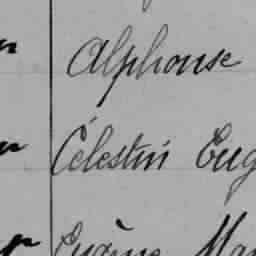 Alphonse
Célestin Eug
Eugène Ma